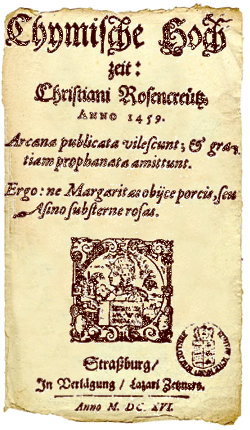 Chymische Hoch
zeit:
Christiani Rosencreütz.
ANNO 1459.
Arcana publicata vilescunt; & gra-
tiam prophanata amittunt.
Ergo: ne Margaritas obijce porcis, seu
Asino substerne rosas.
Straßburg/
In Verlägung / Lazari Zetzners.
Anno M. DC. XVI.